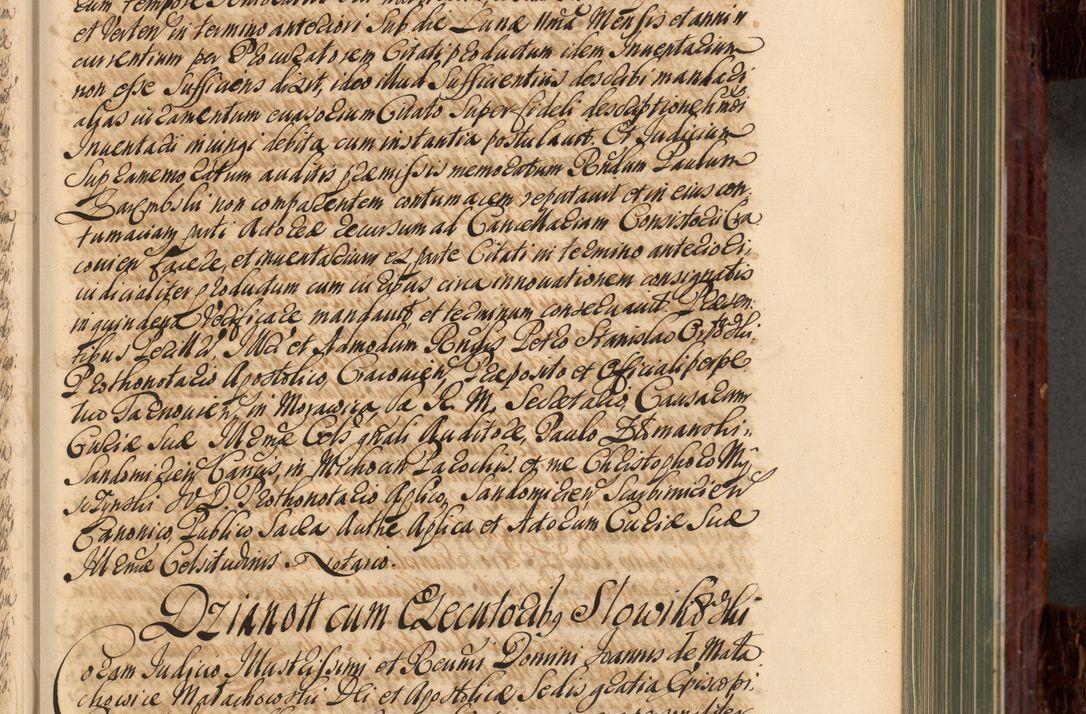 et Verten in termino anteriori sub die Lunæ 11ma Mensis et anni n
currentium per Procuratorem Citati productum idem Inventarium
non esse Sufficiens dixit, ideo illud Sufficientius describi mandari
alias iuramentum cuasorium Citato Super fideli descriptione hmdi
Inventarii iniungi debita cum instantia postulavit. Et Iudicium
Supramemoratum auditis præmissis memoratum Rndum Paulum
Zarembski non comparentem contumacem reputavit et in eius con
tumaciam parti Actoreæ recursum ad Cancellariam Consistorii Cra
covien facere, et inventarium ex parte Citati in termino anteriori
iudicialiter productum cum iuribus circa innovationem consignatis
in quindena verificare mandavit, et terminum conservavit. Præsen
tibus Perillri, Illri et Admodum Rndis Petro Stanislao Orłowski
Prothonotario Apostolico, Cracovien, Præposito et Officiali perpe
tuo Tarnovien, in Morawica Sæ R. M. Secretario Causarum
Curiæ Suæ Illrmæ Cels gnali Auditore, Paulo Dźmanski
Sandomirien Cancis, in Michocin Parochis. et me Christophoro My
sczynski IVD Prothonotario Aplico, Sandomirien, Scarbimirien
Canonico, Publico Sacra Authe Aplica et Actorum Curiæ Suæ
Illrmæ Celsitudinis Notario.
Dzianott cum Executoribg Słowikowski
Coram Iudicio Illustrissimi et Revmi Domini Joannis de Mała
chowice Małachowski Dei et Apostolicæ Sedis gratia Episcopi